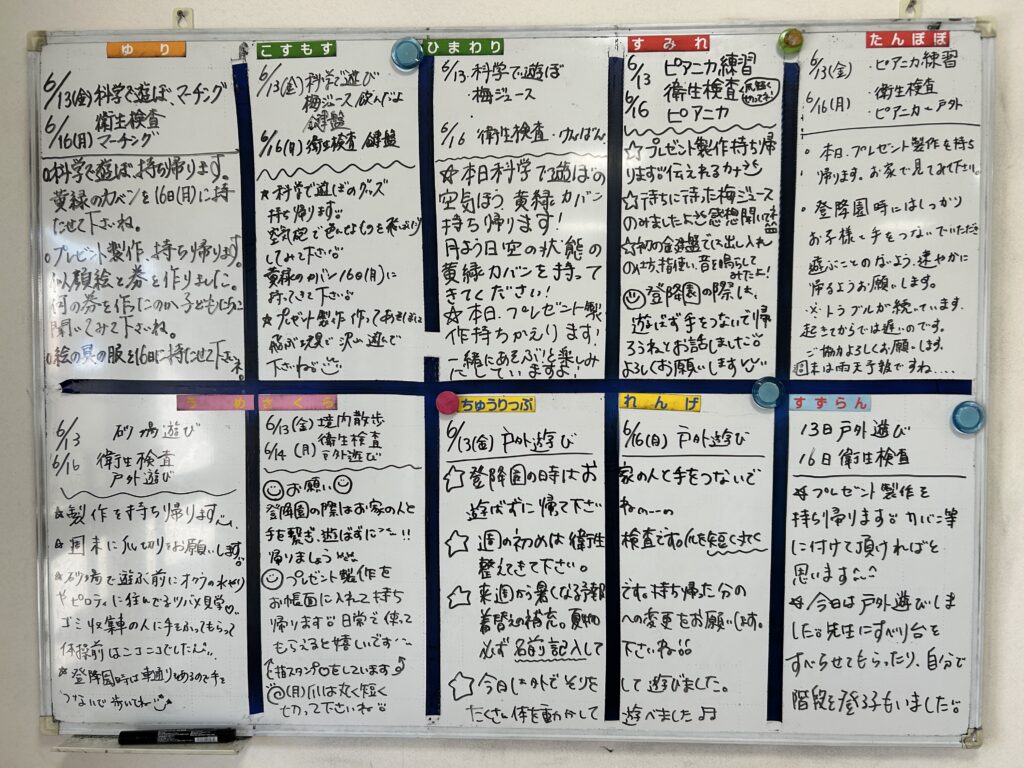 ゆり
6/13(金)科学で遊ぼ、マーチング
衛生検査
6/16(月)マーチング
科学で遊ぼ、持ち帰ります。
黄緑のカバンを16日(月)に持
たせて下さいね。
プレゼント製作、持ち帰ります。
似顔絵と券を作りました。
何の券を作ったのか子どもたちに
聞いてみて下さいね。
絵の具の服を16日に持たせて下さいネ
こすもす
6/13(金)科学で遊び
梅ジュース飲んだよ
鍵盤
6/16(月)衛生検査 鍵盤
★科学で遊ぼのグッズ
持ち帰ります
空気砲で色んなものを飛ばしたり
してみて下さい
黄緑のカバン16日(月)に
持ってきて下さい
★プレゼント製作
下さいね
ひまわり
6/13 科学で遊ぼ
・梅ジュース
6/16 衛生検査・けんばん
☆本日科学で遊ぼの
空気ほう黄緑カバン
持ち帰ります!
月よう日空の状態の
黄緑カバンを持って
きてください!
☆本日、プレゼント製
作持ちかえります!
一緒にあそぶと楽しみ
にしていますよ!
すみれ
6/13 ピアニカ練習
衛生検査
6/16 ピアニカ
☆プレゼント製作持ち帰
ります 伝えれるカナ
☆待ちに待った梅ジュース
のみましたよ 感想聞いてネ
☆初の鍵盤で 出し入れ
の仕方、指使い、音を鳴らして
みたよ!
登降園の際は、
遊ばず手をつないで帰
ろうねとお話しました
よろしくお願いします
たんぽぽ
6/13(金)・ピアニカ練習
6/16(月)・衛生検査
・ピアニカ・戸外
・本日、プレゼント製作を持ち
帰ります。お家で見てみて下さい。
・登降園時にはしっかり
お子様と手をつないでいただき
遊ぶことのないよう、速やかに
帰るようお願いします。
※トラブルが続いています。
起きてからでは遅いのです。
ご協力よろしくお願いします。
週末は雨天予報ですね....
うめ
6/13 砂場遊び
6/16 衛生検査
戸外遊び
★製作を持ち帰ります
★週末に爪切りをお願いします
★砂場で遊ぶ前にオクラの水やり
やピロティに住んでるツバメ見学♡
ゴミ収集車の人に手をふってもらって
体操前はニコニコでした
★登降園時は車通りもあるので手を
つないで歩いてね
さくら
6/13(金)境内散歩
6/14(月)衛生検査
戸外遊び
お願い
登降園の際はお家の人と
手を繋ぎ、遊ばずに〜!!
帰りましょう
プレゼント製作を
お帳面に入れて持ち
帰ります 日常で使って
もらえると嬉しいです
(指スタンプ をしています)
(月)爪は丸く短く
切って下さいね
ちゅうりっぷ
6/13(金)戸外遊び
☆登降園の時はお
遊ばずに帰て下さい
☆週の初めは衛生
整えてきて下さい。
☆来週から暑くなる予報
着替えの補充。夏物
必ず名前記入して
☆今日は外でそりを
たくさん体を動かして
れんげ
6/16(月)戸外遊び
家の人と手をつないで
ね
検査です。爪を短く丸く
です。持ち帰た分の
への変更をお願いします。
下さいね
して遊びました。
遊べました♫
すずらん
13日戸外遊び
16日衛生検査
★プレゼント製作を
持ち帰ります カバン等
に付けて頂ければと
思います
★今日は戸外遊びしま
した 先生にすべり台を
すべらせてもらったり、自分で
階段を登る子もいました